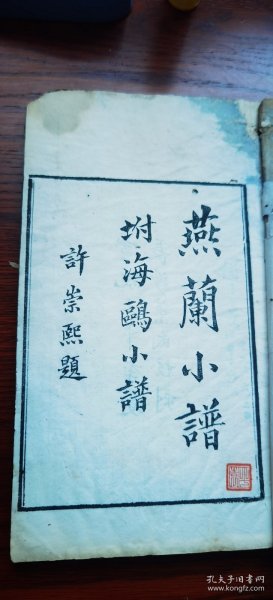 燕蘭小譜
坿海鷗小譜
許崇熙題
孔夫子旧书网
kongfz.com